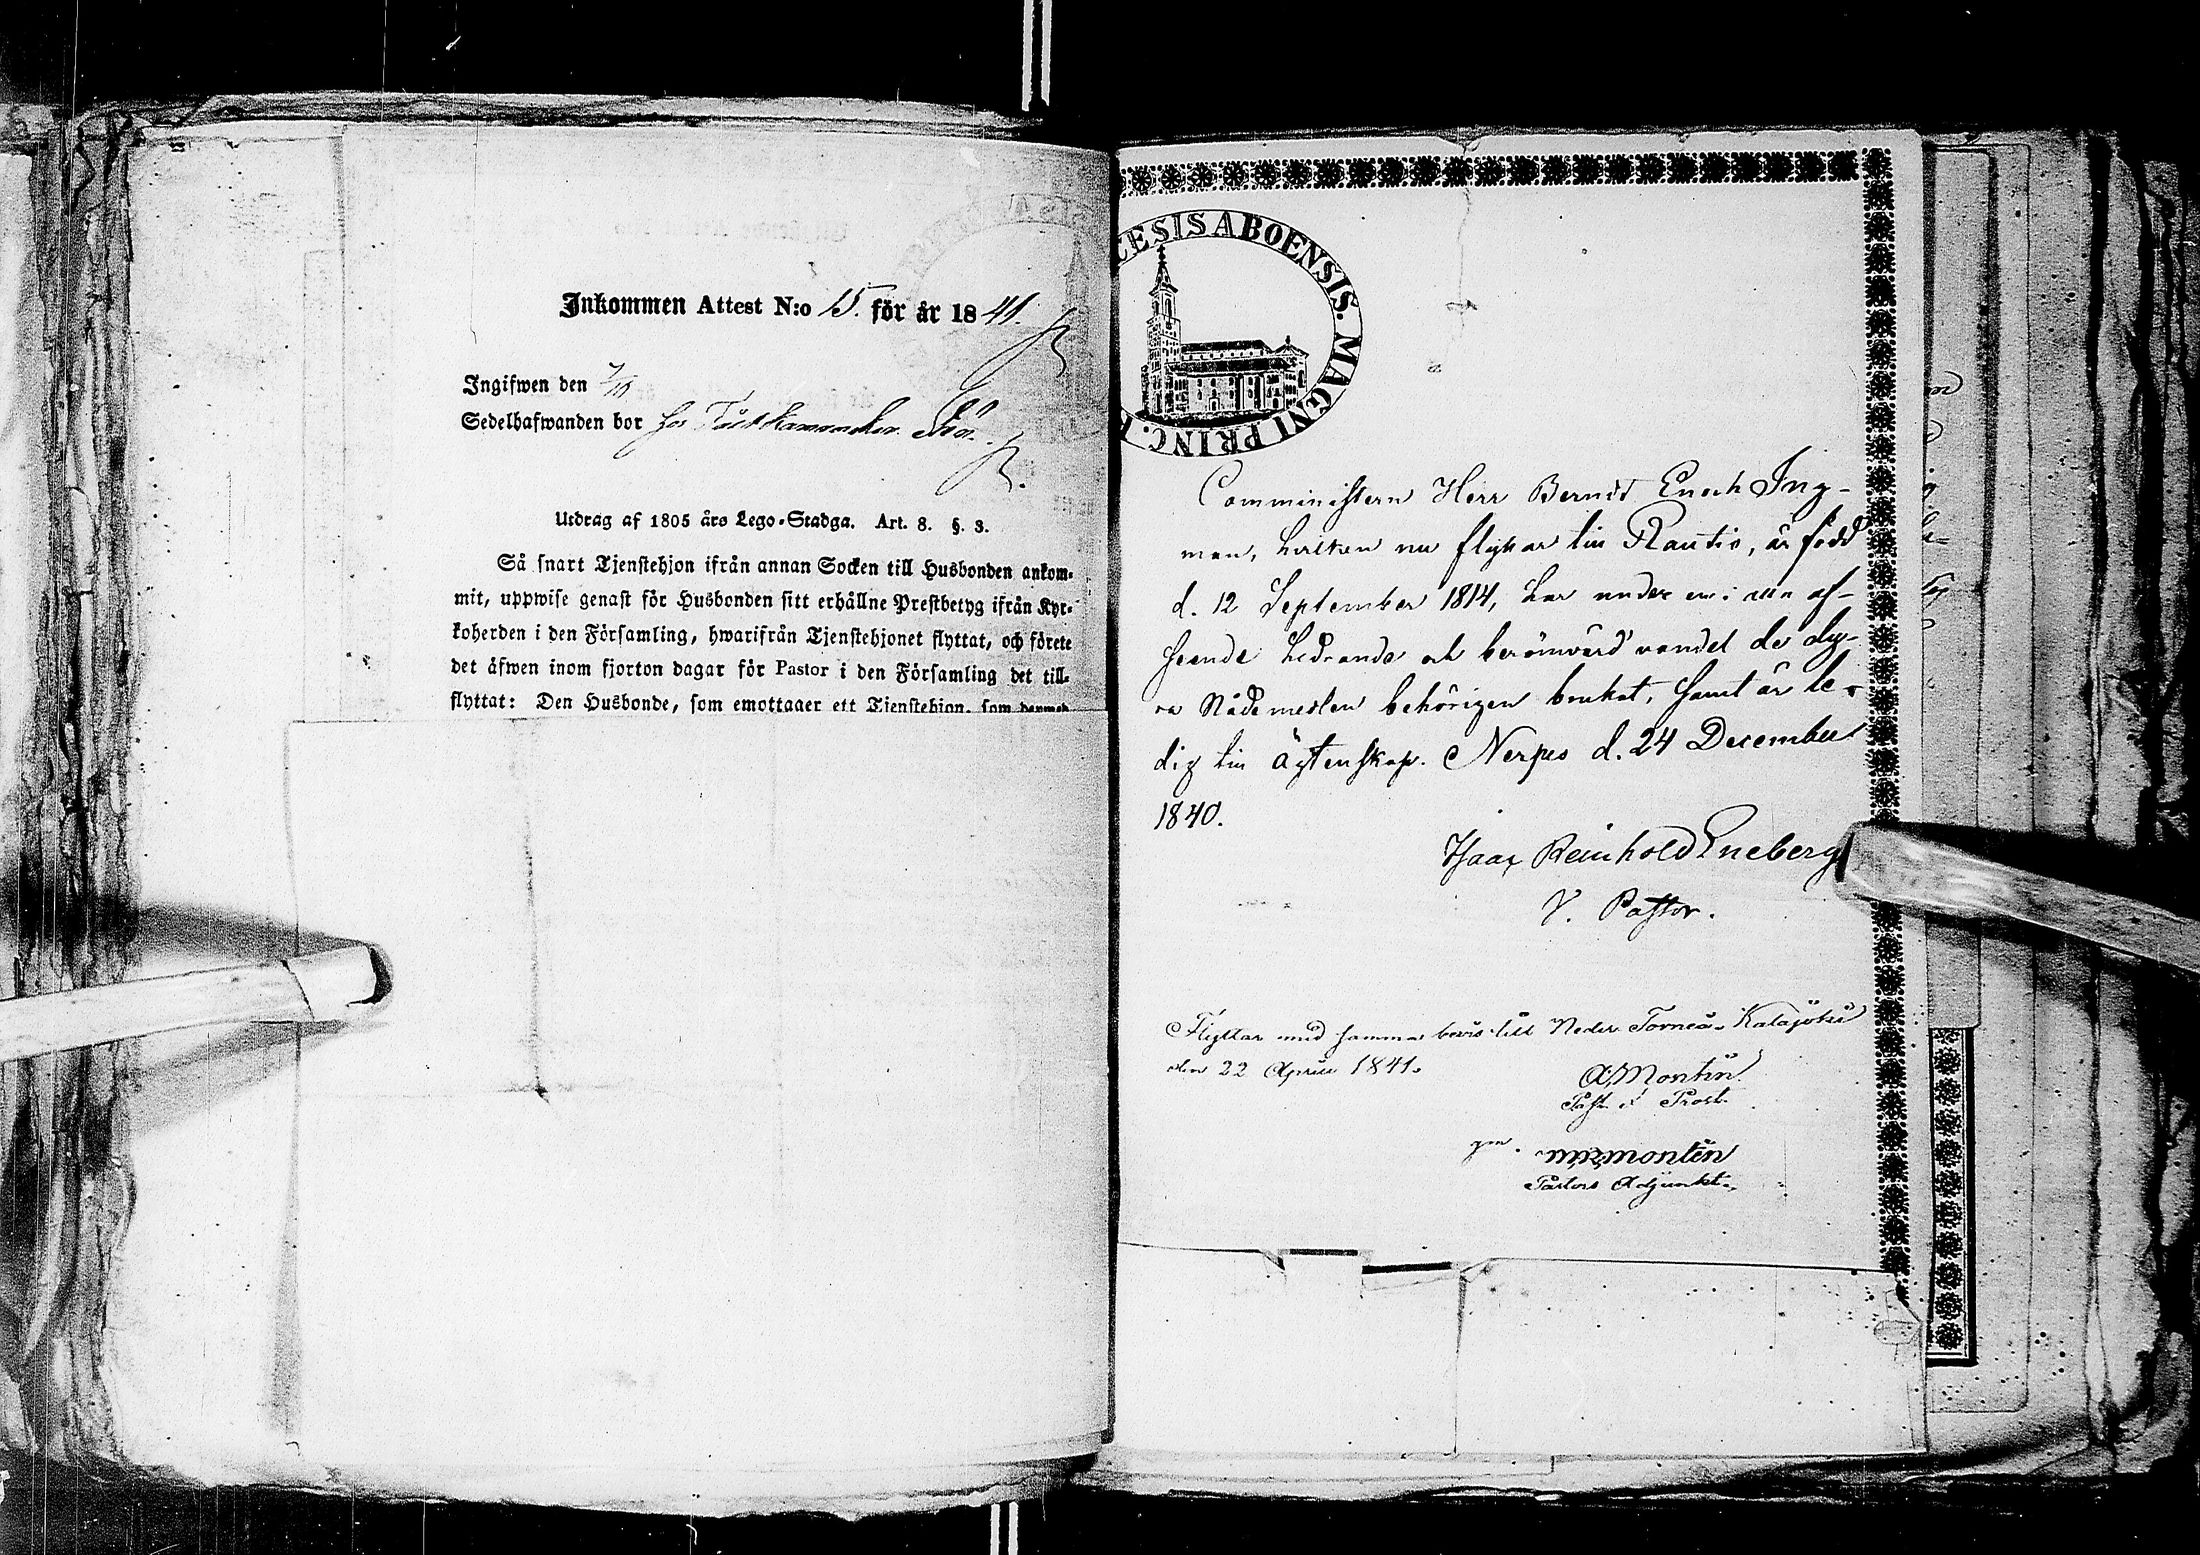 Inkommen Attest N:o 15. för år 1841.
Ingifwen den 7/10
Sedelhafwanden bor hos
Utdrag af 1805 års Lego-Stadga. Art. 8. §. 3.
Så snart Tjenstehjon ifrån annan Socken till Husbonden ankom-
mit, uppwise genast för Husbonden sitt erhållne Prestbetyg ifrån Kyr-
koherden i den Församling, hwarifrån Tjenstehjonet flyttat, och förete
det äfwen inom fjorton dagar för Pastor i den Församling det till-
flyttat: Den Husbonde, som emottager ett Tjenstehjon, som
ESIS ABOENSIS. MAGNI PRINC.
Comministern Herr Berndt Enoch Ing-
man, hvilken nu flyttar till Rautio, är född
d. 12 September 1814, har under en i alla af-
seende hedrande och berömvärd vandel de dy-
ra Nådemedlen behörigen brukat, samt är le-
dig till ägtenskap. Nerpes d. 24 December
1840.
Isaac Reinhold Eneberg
V. Pastor.
Flyttar med samma bevis till Neder Torneå. Kalajoki
den 22 April 1841.
A Montin
Past. & Prost.
gm. Montén
Pastors Adjunkt.